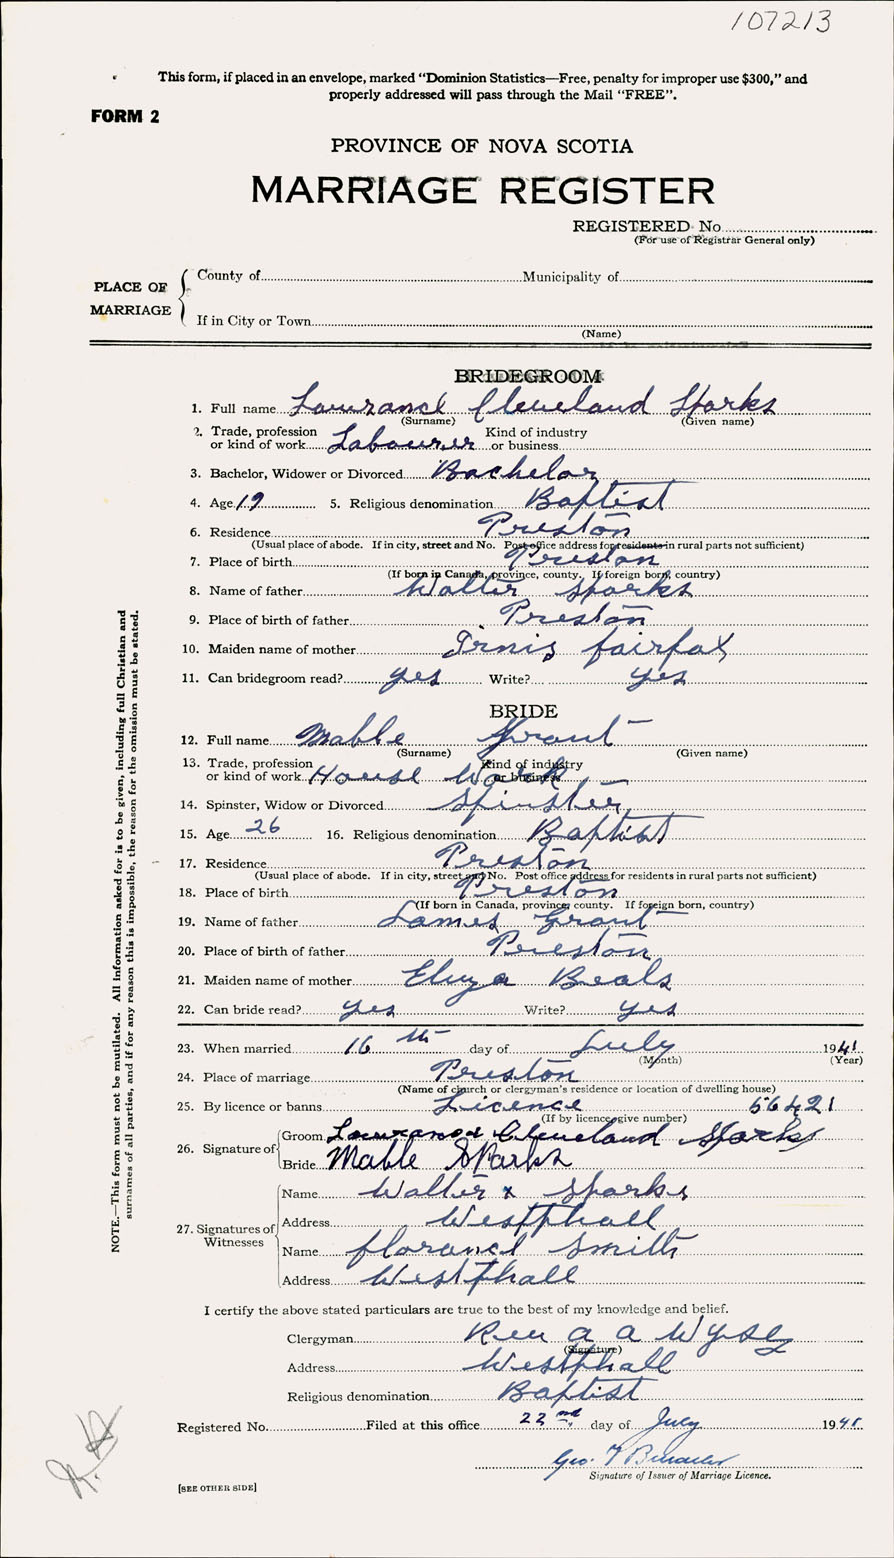 107213
This form, if placed in an envelope, marked "Dominion Statistics—Free, penalty for improper use $300," and
properly addressed will pass through the Mail "FREE".
FORM 2
PROVINCE OF NOVA SCOTIA
MARRIAGE REGISTER
REGISTERED No.
(For use of Registrar General only)
PLACE OF MARRIAGE
County of Municipality of
If in City or Town
(Name)
BRIDEGROOM
1. Full name Lawrance Cleveland Sparks
(Surname) (Given name)
2. Trade, profession or kind of work Labourer Kind of industry or business
3. Bachelor, Widower or Divorced Bachelor
4. Age 19 5. Religious denomination Baptist
6. Residence Preston
(Usual place of abode. If in city, street and No. Post office address for residents in rural parts not sufficient)
7. Place of birth Preston
(If born in Canada, province, county. If foreign born, country)
8. Name of father Walter Sparks
9. Place of birth of father Preston
10. Maiden name of mother fairfax
11. Can bridegroom read? yes Write? yes
BRIDE
12. Full name Mable Grant
(Surname) (Given name)
13. Trade, profession or kind of work House Work Kind of industry or business
14. Spinster, Widow or Divorced Spinster
15. Age 26 16. Religious denomination Baptist
17. Residence Preston
(Usual place of abode. If in city, street and No. Post office address for residents in rural parts not sufficient)
18. Place of birth Preston
(If born in Canada, province, county. If foreign born, country)
19. Name of father James Grant
20. Place of birth of father Preston
21. Maiden name of mother Eliza Beals
22. Can bride read? yes Write? yes
23. When married 16 th day of July 1941
(Month) (Year)
24. Place of marriage Preston
(Name of church or clergyman's residence or location of dwelling house)
25. By licence or banns Licence 56421
(If by licence, give number)
26. Signature of
Groom Lawrance Cleveland Sparks
Bride Mable Sparks
27. Signatures of Witnesses
Name Walter x Sparks
Address Westphall
Name florance Smith
Address Westphall
I certify the above stated particulars are true to the best of my knowledge and belief.
Clergyman Rev a a Wysey
(Signature)
Address Westphall
Religious denomination Baptist
Registered No. Filed at this office 22nd day of July 1941
Geo.
Signature of Issuer of Marriage Licence.
[SEE OTHER SIDE]
NOTE.—This form must not be mutilated. All information asked for is to be given, including full Christian and
surnames of all parties, and if for any reason this is impossible, the reason for the omission must be stated.